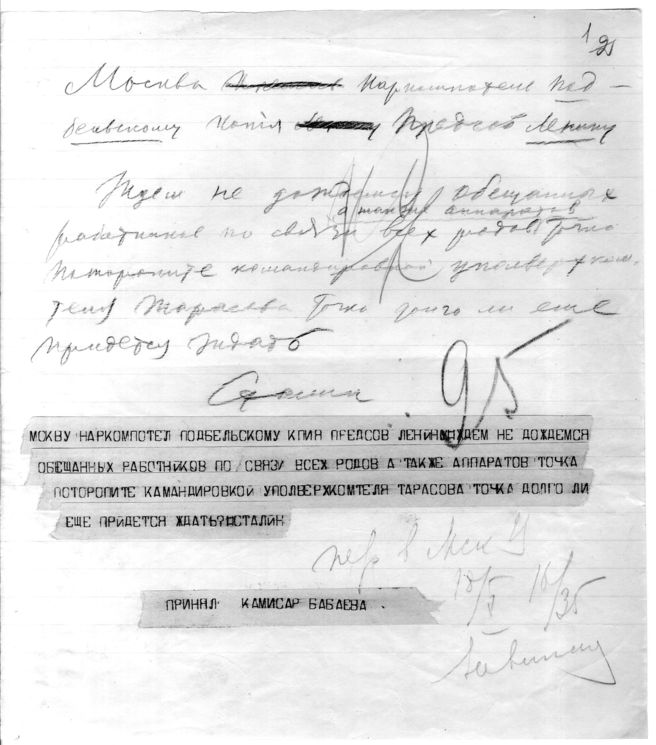 1
95
Москва Наркомпотель Под-
бельскому Копия Предсов Ленину
Ждем не дождемся обещанных
а также аппаратов
работников по связи всех родов Точка
Поторопите командировкой уполверхком-
теля Тарасова Точка долго ли еще
придется ждать
Сталин
95
МОКВУ НАРКОМПОТЕЛ ПОДБЕЛЬСКОМУ КПИЯ ПРЕДСОВ ЛЕНИН ЖДЕМ НЕ ДОЖДЕМСЯ
ОБЕЩАННЫХ РАБОТНЙКОВ ПО СВЯЗИ ВСЕХ РОДОВ А ТАКЖЕ АППАРАТОВ ТОЧКА
ПОТОРОПИТЕ КАМАНДИРОВКОЙ УПОЛВЕРХКОМТЕЛЯ ТАРАСОВА ТОЧКА ДОЛГО ЛИ
ЕЩЕ ПРИДЕТСЯ ЖДАТЬ? СТАЛИН
пер в Мск
ПРИНЯЛ КАМИСАР БАБАЕВА .